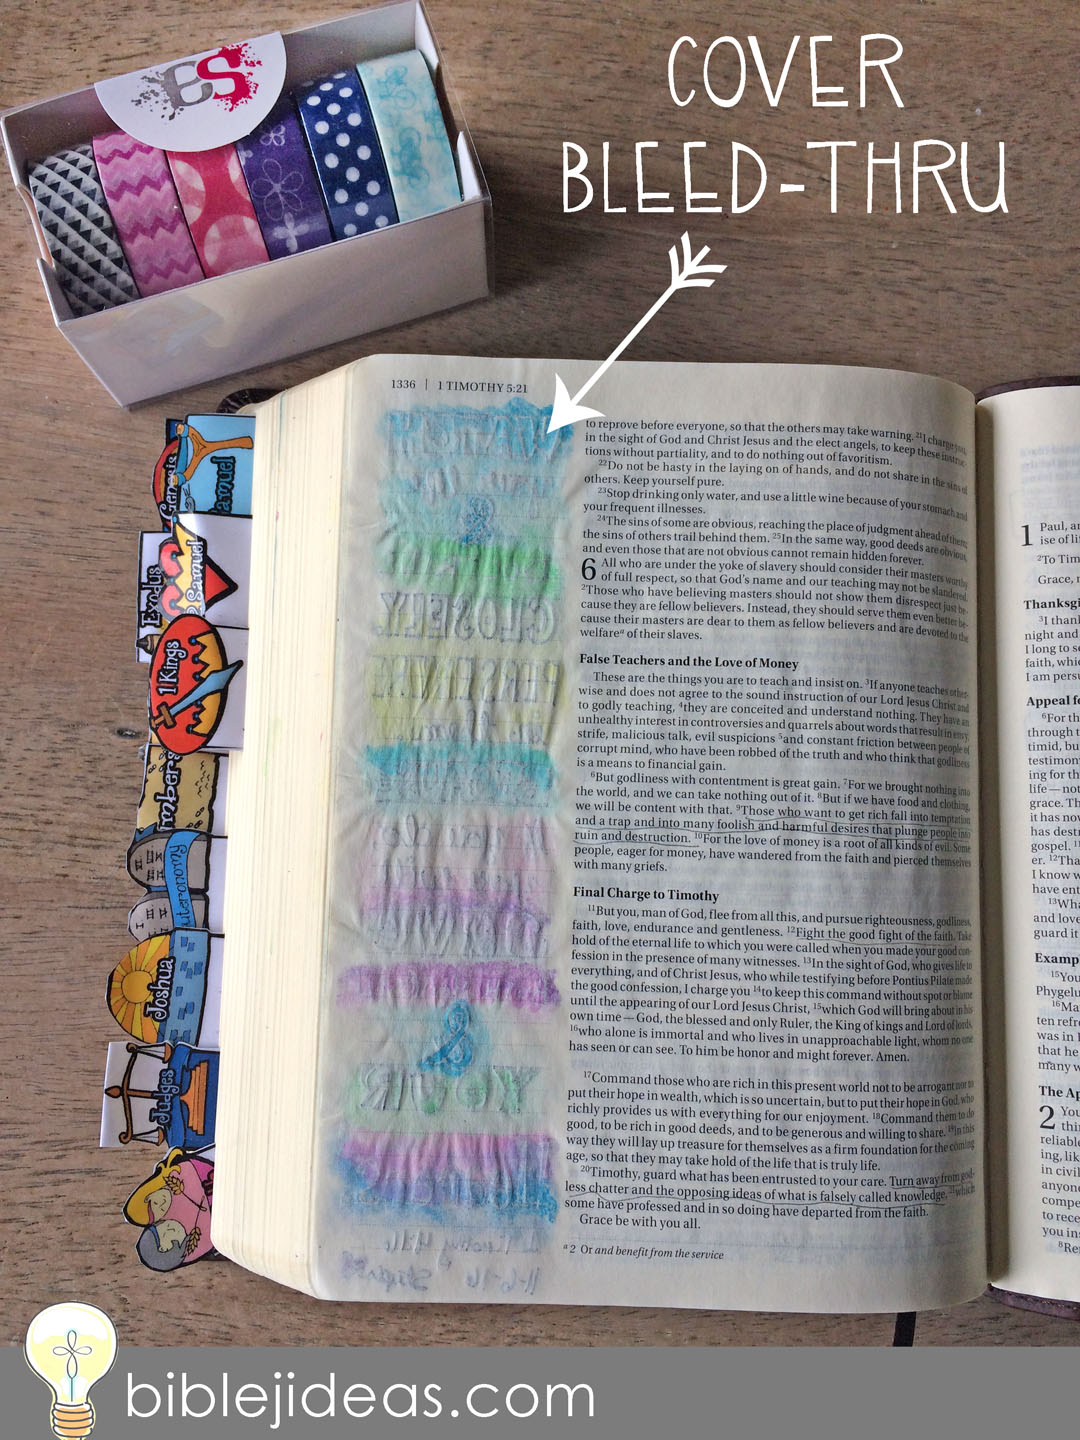 ES
COVER
BLEED-THRU
1336 | 1 TIMOTHY 5:21
to reprove before everyone, so that the others may take warning. 21I charge you,
in the sight of God and Christ Jesus and the elect angels, to keep these instruc-
tions without partiality, and to do nothing out of favoritism.
22Do not be hasty in the laying on of hands, and do not share in the sins of
others. Keep yourself pure.
23Stop drinking only water, and use a little wine because of your stomach and
your frequent illnesses.
24The sins of some are obvious, reaching the place of judgment ahead of them;
the sins of others trail behind them. 25In the same way, good deeds are obvious,
and even those that are not obvious cannot remain hidden forever.
6 All who are under the yoke of slavery should consider their masters worthy
of full respect, so that God's name and our teaching may not be slandered.
2Those who have believing masters should not show them disrespect just be-
cause they are fellow believers. Instead, they should serve them even better be-
cause their masters are dear to them as fellow believers and are devoted to the
welfarea of their slaves.
False Teachers and the Love of Money
These are the things you are to teach and insist on. 3If anyone teaches other-
wise and does not agree to the sound instruction of our Lord Jesus Christ and
to godly teaching, 4they are conceited and understand nothing. They have an
unhealthy interest in controversies and quarrels about words that result in envy,
strife, malicious talk, evil suspicions 5and constant friction between people of
corrupt mind, who have been robbed of the truth and who think that godliness
is a means to financial gain.
6But godliness with contentment is great gain. 7For we brought nothing into
the world, and we can take nothing out of it. 8But if we have food and clothing,
we will be content with that. 9Those who want to get rich fall into temptation
and a trap and into many foolish and harmful desires that plunge people into
ruin and destruction. 10For the love of money is a root of all kinds of evil. Some
people, eager for money, have wandered from the faith and pierced themselves
with many griefs.
Final Charge to Timothy
11But you, man of God, flee from all this, and pursue righteousness, godliness,
faith, love, endurance and gentleness. 12Fight the good fight of the faith. Take
hold of the eternal life to which you were called when you made your good con-
fession in the presence of many witnesses. 13In the sight of God, who gives life to
everything, and of Christ Jesus, who while testifying before Pontius Pilate made
the good confession, I charge you 14to keep this command without spot or blame
until the appearing of our Lord Jesus Christ, 15which God will bring about in his
own time — God, the blessed and only Ruler, the King of kings and Lord of lords,
16who alone is immortal and who lives in unapproachable light, whom no one
has seen or can see. To him be honor and might forever. Amen.
17Command those who are rich in this present world not to be arrogant nor to
put their hope in wealth, which is so uncertain, but to put their hope in God, who
richly provides us with everything for our enjoyment. 18Command them to do
good, to be rich in good deeds, and to be generous and willing to share. 19In this
way they will lay up treasure for themselves as a firm foundation for the coming
age, so that they may take hold of the life that is truly life.
20Timothy, guard what has been entrusted to your care. Turn away from god-
less chatter and the opposing ideas of what is falsely called knowledge, 21which
some have professed and in so doing have departed from the faith.
Grace be with you all.
a 2 Or and benefit from the service
&
CLOSELY
&
YOUR
11-6-16
Genesis
Samuel
Exodus
2 Samuel
1 Kings
mbers
uteronomy
Joshua
Judges
1 Paul, a
ise of li
2To Tim
Grace,
Thanksgi
3I than
night and
I long to s
faith, whic
I am persu
Appeal fo
6For th
through t
timid, bu
testimon
ing for th
life — not
grace. Th
it has now
has dest
gospel. 11
er. 12Tha
I know w
have ent
13Wha
and love
guard it
Examp
15You
Phygelu
16Ma
ten refr
was in
that he
many w
The Ap
2 You
thin
reliabl
ing, lik
in civil
anyone
compe
to rece
you ins
8Re
biblejideas.com